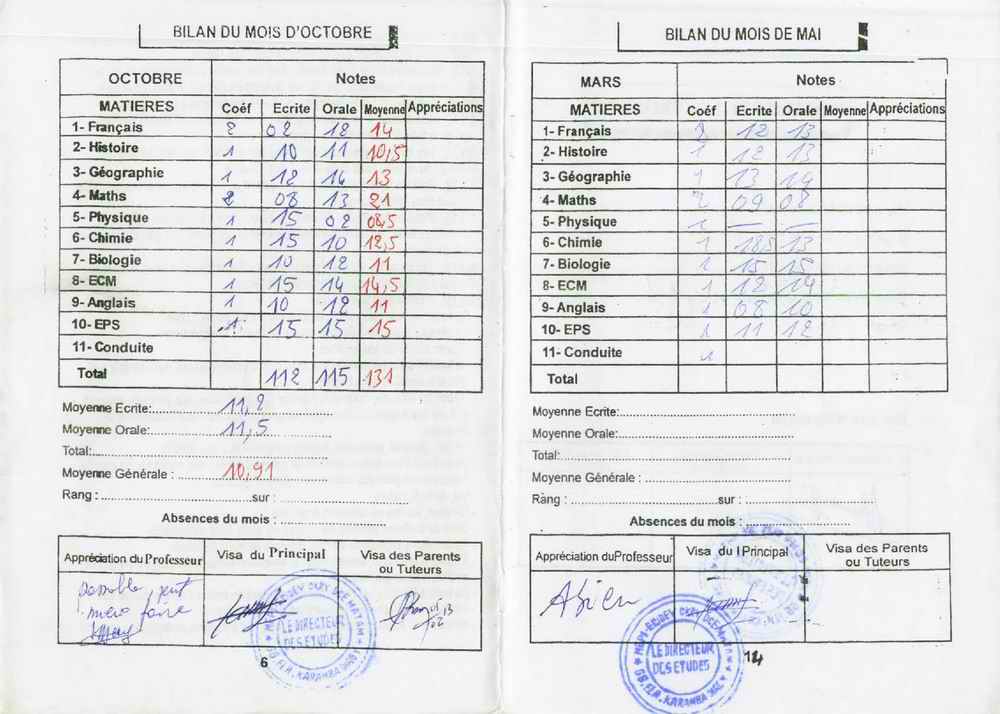 BILAN DU MOIS D'OCTOBRE
OCTOBRE Notes
MATIERES Coéf Ecrite Orale Moyenne Appréciations
1- Français 2 02 12 14
2- Histoire 1 10 11 10,5
3- Géographie 1 12 14 13
4- Maths 2 08 13 21
5- Physique 1 15 02 08,5
6- Chimie 1 15 10 12,5
7- Biologie 1 10 12 11
8- ECM 1 15 14 14,5
9- Anglais 1 10 12 11
10- EPS 1 15 15 15
11- Conduite
Total 112 115 131
Moyenne Ecrite: 11,2
Moyenne Orale: 11,5
Total:
Moyenne Générale : 10,91
Rang : sur :
Absences du mois :
Appréciation du Professeur Visa du Principal Visa des Parents ou Tuteurs
peut
faire
LE DIRECTEUR
DES ETUDES
6
BILAN DU MOIS DE MAI
MARS Notes
MATIERES Coéf Ecrite Orale Moyenne Appréciations
1- Français 2 12 13
2- Histoire 1 12 13
3- Géographie 1 13 14
4- Maths 2 09 08
5- Physique 1 — —
6- Chimie 1 18,5 13
7- Biologie 1 15 15
8- ECM 1 12 14
9- Anglais 1 08 10
10- EPS 1 11 12
11- Conduite 1
Total
Moyenne Ecrite:
Moyenne Orale:
Total:
Moyenne Générale :
Rang : sur :
Absences du mois :
Appréciation du Professeur Visa du Principal Visa des Parents ou Tuteurs
LE DIRECTEUR
DES ETUDES